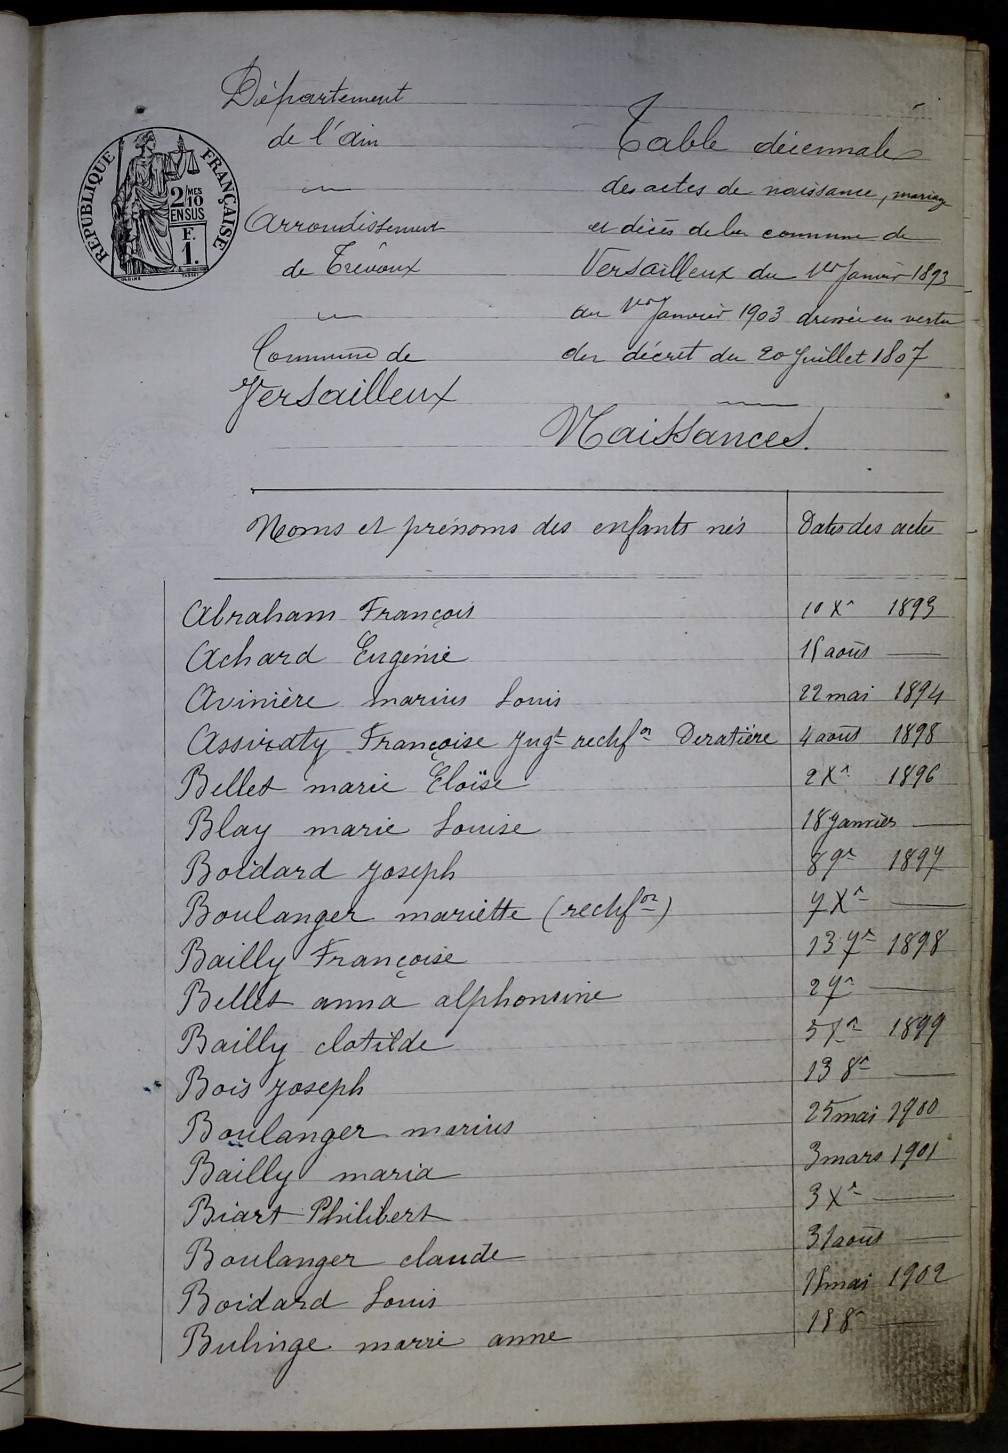 Département
de l'ain
Arrondissement
de Trévoux
Commune de
Versailleux
RÉPUBLIQUE FRANÇAISE
2/MES
10
EN SUS
F.
1.
Table décennale
des actes de naissance, mariage
et décès de la commune de
Versailleux du 1er Janvier 1893
au 1er Janvier 1903 dressée en vertu
du décret du 20 Juillet 1807
Naissances.
Noms et prénoms des enfants nés Dates des actes
Abraham François 10 Xr 1893
Achard Eugénie août —
Avinière marius Louis 22 mai 1894
Françoise Jugt rectifon Deratière 4 août 1898
Bellet marie Eloïse 2 Xr 1896
Blay marie Louise 18 Janvier —
Boidard Joseph 8 9r 1897
Boulanger mariette (rectifon) 7 Xr —
Bailly Françoise 13 7r 1898
Bellet anna alphonsine 2 7r —
Bailly clotilde 1899
Bois Joseph 13 8r —
Boulanger marius 25 mai 1900
Bailly maria 3 mars 1901
Biart Philibert 3 Xr —
Boulanger claude 31 août —
Boidard Louis mai 1902
Bulinge marie anne 8r —